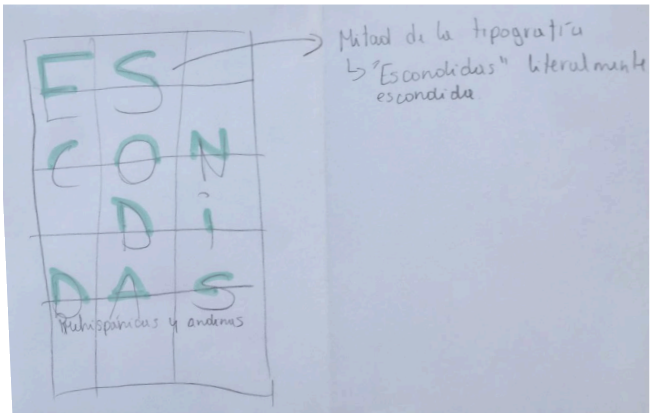 ES
CON
Di
DAS
Prehispánicas y andinas
Mitad de la tipografía
↳ "Escondidas" literalmente
escondida